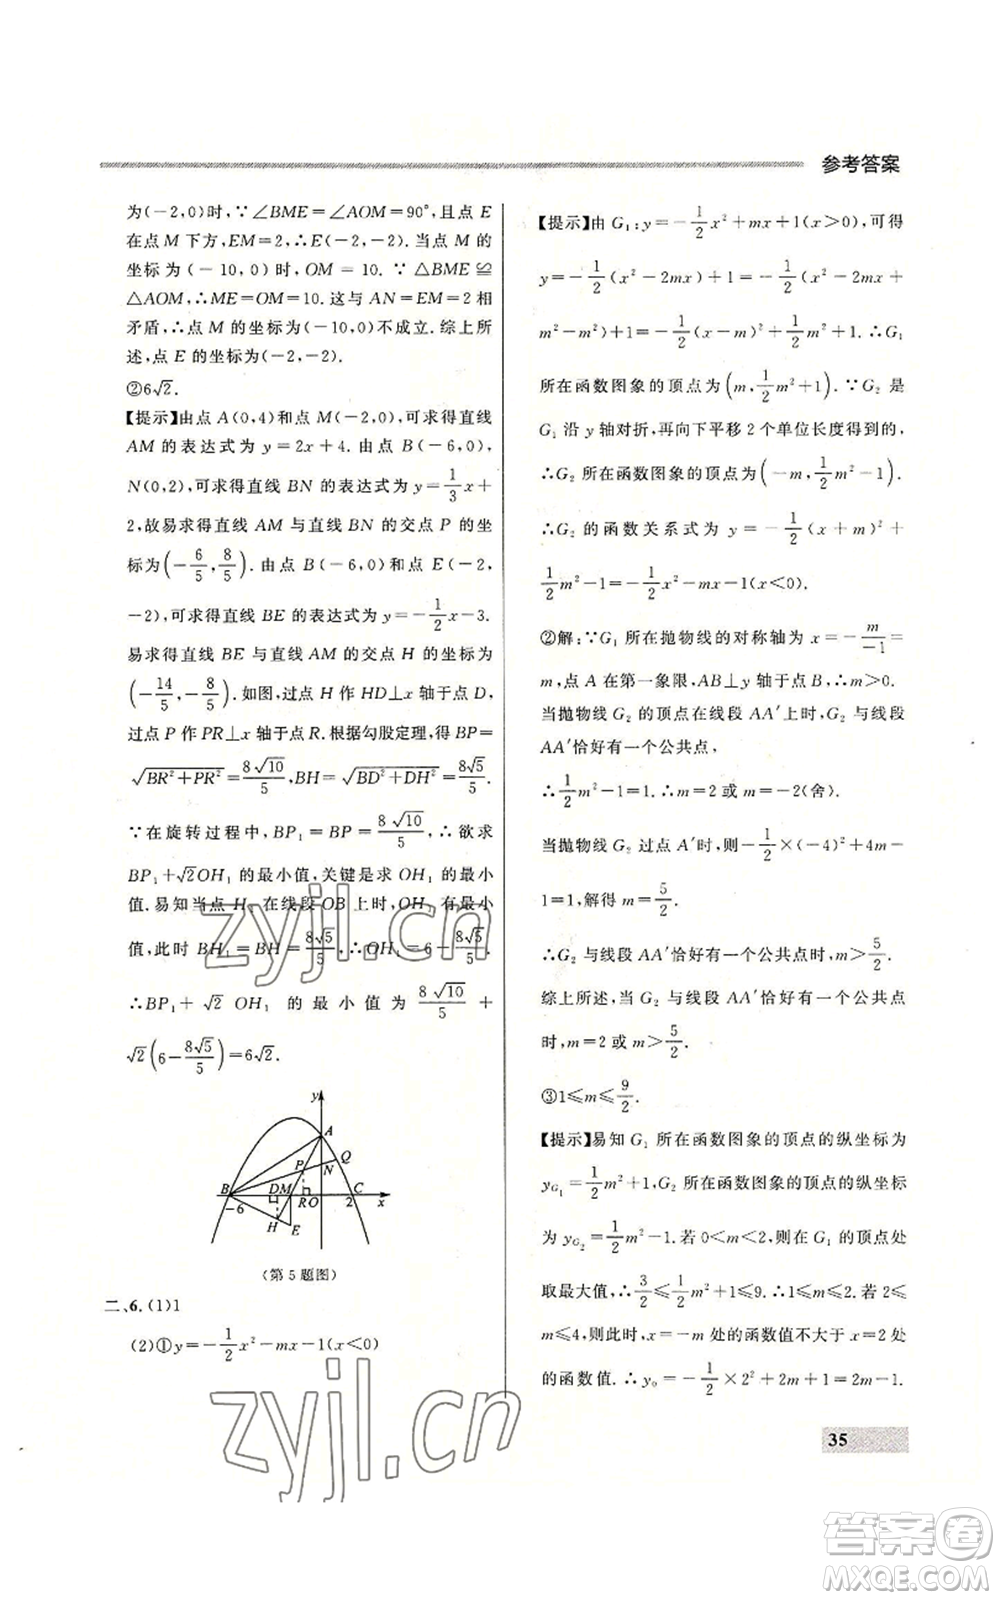 参考答案
为(－2,0)时,∵∠BME＝∠AOM＝90°,且点 E
在点 M 下方,EM＝2,∴E(－2,－2).当点 M 的
坐标为(－10,0)时,OM＝10.∵△BME≌
△AOM,∴ME＝OM＝10.这与 AN＝EM＝2 相
矛盾,∴点 M 的坐标为(－10,0)不成立.综上所
述,点 E 的坐标为(－2,－2).
②6√2.
【提示】由点 A(0,4)和点 M(－2,0),可求得直线
AM 的表达式为 y＝2x＋4.由点 B(－6,0),
N(0,2),可求得直线 BN 的表达式为 y＝1/3x＋
2,故易求得直线 AM 与直线 BN 的交点 P 的坐
标为(－6/5,8/5).由点 B(－6,0)和点 E(－2,
－2),可求得直线 BE 的表达式为 y＝－1/2x－3.
易求得直线 BE 与直线 AM 的交点 H 的坐标为
(－14/5,－8/5).如图,过点 H 作 HD⊥x 轴于点 D,
过点 P 作 PR⊥x 轴于点 R.根据勾股定理,得 BP＝
√(BR²＋PR²)＝8√10/5,BH＝√(BD²＋DH²)＝8√5/5.
∵在旋转过程中,BP₁＝BP＝8√10/5,∴欲求
BP₁＋√2OH₁ 的最小值,关键是求 OH₁ 的最小
值.易知当点 H₁ 在线段 OB 上时,OH₁ 有最小
值,此时 BH₁＝BH＝8√5/5,∴OH₁＝6－8√5/5.
∴BP₁＋√2OH₁ 的最小值为 8√10/5＋
√2(6－8√5/5)＝6√2.
y
A
Q
P
N
B
D M
C
－6
R O
2
x
H
E
(第 5 题图)
二、6.(1)1
(2)①y＝－1/2x²－mx－1(x＜0)
【提示】由 G₁:y＝－1/2x²＋mx＋1(x＞0),可得
y＝－1/2(x²－2mx)＋1＝－1/2(x²－2mx＋
m²－m²)＋1＝－1/2(x－m)²＋1/2m²＋1.∴G₁
所在函数图象的顶点为(m,1/2m²＋1).∵G₂ 是
G₁ 沿 y 轴对折,再向下平移 2 个单位长度得到的,
∴G₂ 所在函数图象的顶点为(－m,1/2m²－1).
∴G₂ 的函数关系式为 y＝－1/2(x＋m)²＋
1/2m²－1＝－1/2x²－mx－1(x＜0).
②解:∵G₁ 所在抛物线的对称轴为 x＝－m/－1＝
m,点 A 在第一象限,AB⊥y 轴于点 B,∴m＞0.
当抛物线 G₂ 的顶点在线段 AA′上时,G₂ 与线段
AA′恰好有一个公共点,
∴1/2m²－1＝1.∴m＝2 或 m＝－2(舍).
当抛物线 G₂ 过点 A′时,则－1/2×(－4)²＋4m－
1＝1,解得 m＝5/2.
∴G₂ 与线段 AA′恰好有一个公共点时,m＞5/2.
综上所述,当 G₂ 与线段 AA′恰好有一个公共点
时,m＝2 或 m＞5/2.
③1≤m≤9/2.
【提示】易知 G₁ 所在函数图象的顶点的纵坐标为
y_G₁＝1/2m²＋1,G₂ 所在函数图象的顶点的纵坐标
为 y_G₂＝1/2m²－1.若 0＜m＜2,则在 G₁ 的顶点处
取最大值,∴3/2≤1/2m²＋1≤9.∴1≤m≤2.若 2≤
m≤4,则此时,x＝－m 处的函数值不大于 x＝2 处
的函数值.∴y₀＝－1/2×2²＋2m＋1＝2m－1.
35
zyjl.cn
zyjl.cn
答案卷
MXQE.COM